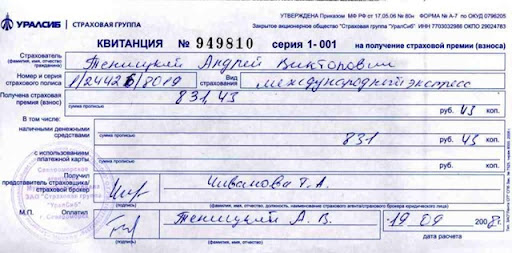 УРАЛСИБ СТРАХОВАЯ ГРУППА
УТВЕРЖДЕНА Приказом МФ РФ от 17.05.06 № 80н ФОРМА № А-7 по ОКУД 0796205
Закрытое акционерное общество "Страховая группа "УралСиб" ИНН 7703032986 ОКПО 29024783
КВИТАНЦИЯ № 949810 серия 1-001 на получение страховой премии (взноса)
Страхователь Теницкий Андрей Викторович
(фамилия, имя, отчество)
Номер и серия страхового полиса Вид страхования международный экспресс
Получена страховая премия (взнос) 831,43
сумма прописью руб. 43 коп.
В том числе:
наличными денежными средствами 831
сумма прописью руб. 43 коп.
с использованием платежной карты
сумма прописью руб. коп.
Получил представитель страховщика/страховой брокер Т.А.
(подпись) (фамилия, имя, отчество, должность, наименование страхового агента/страхового брокера юридического лица)
М.П. Оплатил Теницкий А. В. 19 09 200
(подпись) (фамилия, имя, отчество) дата расчета